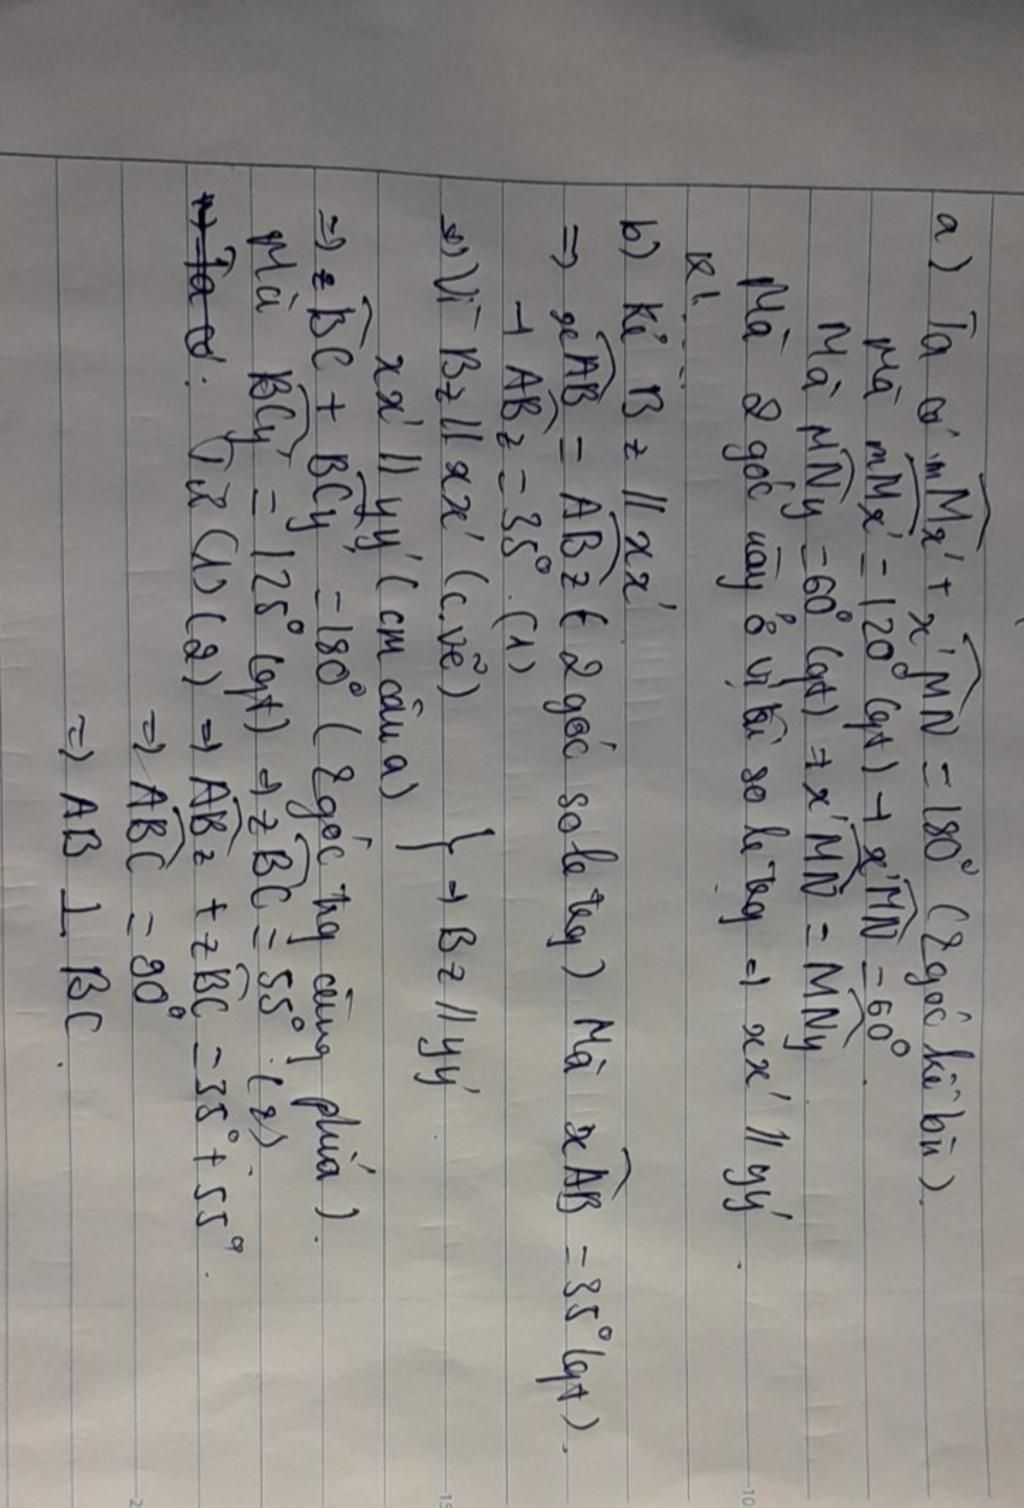 a) Ta có mMx' + x'MN = 180° (2 góc kề bù).
Mà mMx' = 120° (gt) → x'MN = 60°.
Mà MNy = 60° (gt) → x'MN = MNy
Mà 2 góc này ở vị trí so le trg ⇒ xx' // yy'.
b) Kẻ Bz // xx'
⇒ xAB = ABz (2 góc so le trg) Mà xAB = 35° (gt).
→ ABz = 35°. (1)
+) Vì Bz // xx' (c.vẽ)
xx' // yy' (cm câu a) } → Bz // yy'.
⇒ zBC + BCy' = 180° (2 góc trg cùng phía).
Mà BCy' = 125° (gt) ⇒ zBC = 55°. (2)
+) Ta có: Từ (1) (2) ⇒ ABz + zBC = 35° + 55°.
⇒ ABC = 90°
⇒ AB ⊥ BC.